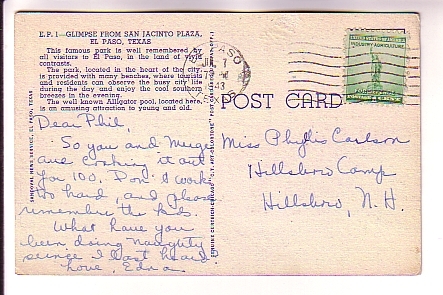 E.P. 1—GLIMPSE FROM SAN JACINTO PLAZA,
EL PASO, TEXAS
This famous park is well remembered by
all visitors to El Paso, in the land of vivid
contrasts.
The park, located in the heart of the city
is provided with many benches, where tourists
and residents can observe the busy city life
during the day and enjoy the cool southern
breezes in the evening.
The well known Alligator pool, located here,
is an amusing attraction to young and old.
SANDOVAL NEWS SERVICE, EL PASO, TEXAS
Dear Phil,
So you and Marge
are cooking it out
for 100. Don't work
too hard, and please
remember the kids.
What have you
been doing naughty
since I last heard
Love, Edna.
EL PASO
JUL 7
1943
TEXAS
UNITED STATES OF AMERICA
INDUSTRY AGRICULTURE
FOR DEFENSE
POST CARD
Miss Phyllis Carlson
Hillsboro Camp
Hillsboro, N. H.